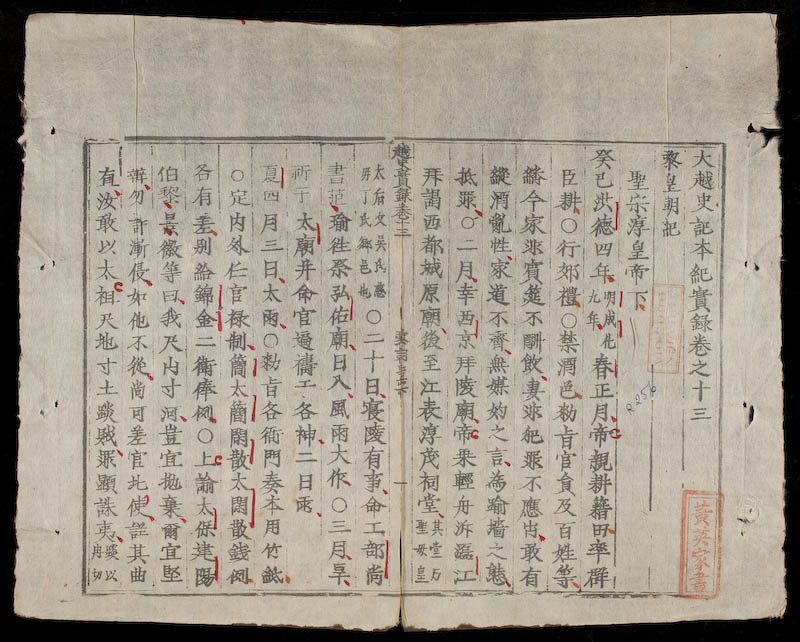 大越史記本紀實録卷之十三
黎皇朝紀
聖宗淳皇帝下
癸巳洪德四年明成化九年春正月帝親耕籍田率群
臣耕○行郊禮○禁酒色勑旨官員及百姓等
繼今家非賓筵不酣飲妻非犯罪不應出敢有
縱酒亂性家道不齊無媒妁之言為踰墻之態
抵罪○二月幸西京拜陵廟帝乗輕舟泝磊江
拜謁西都城原廟後至江表淳茂祠堂其堂乃聖母皇
越史實録卷十三
太后父吳氏
丁氏鄉邑也○二十日寝陵有事命工部尚
書范瑜徃祭弘佑廟日入風雨大作○三月旱
祈于太廟并命官遍禱工各神二日雨
夏四月三日太雨○勑旨各衙門奏本用竹紙
○定内外任官禄制簡太簡閑散太閑散錢例
各有差别給錦金二衛俸例○上諭太保建陽
伯黎景徽等曰我尺山寸河豈宜拋棄爾宜堅
辨勿許漸侵如他不從尚可差官北使詳其曲
直汝敢以太祖尺地寸土啖賊罪顯誅夷
黃英家書
R.256